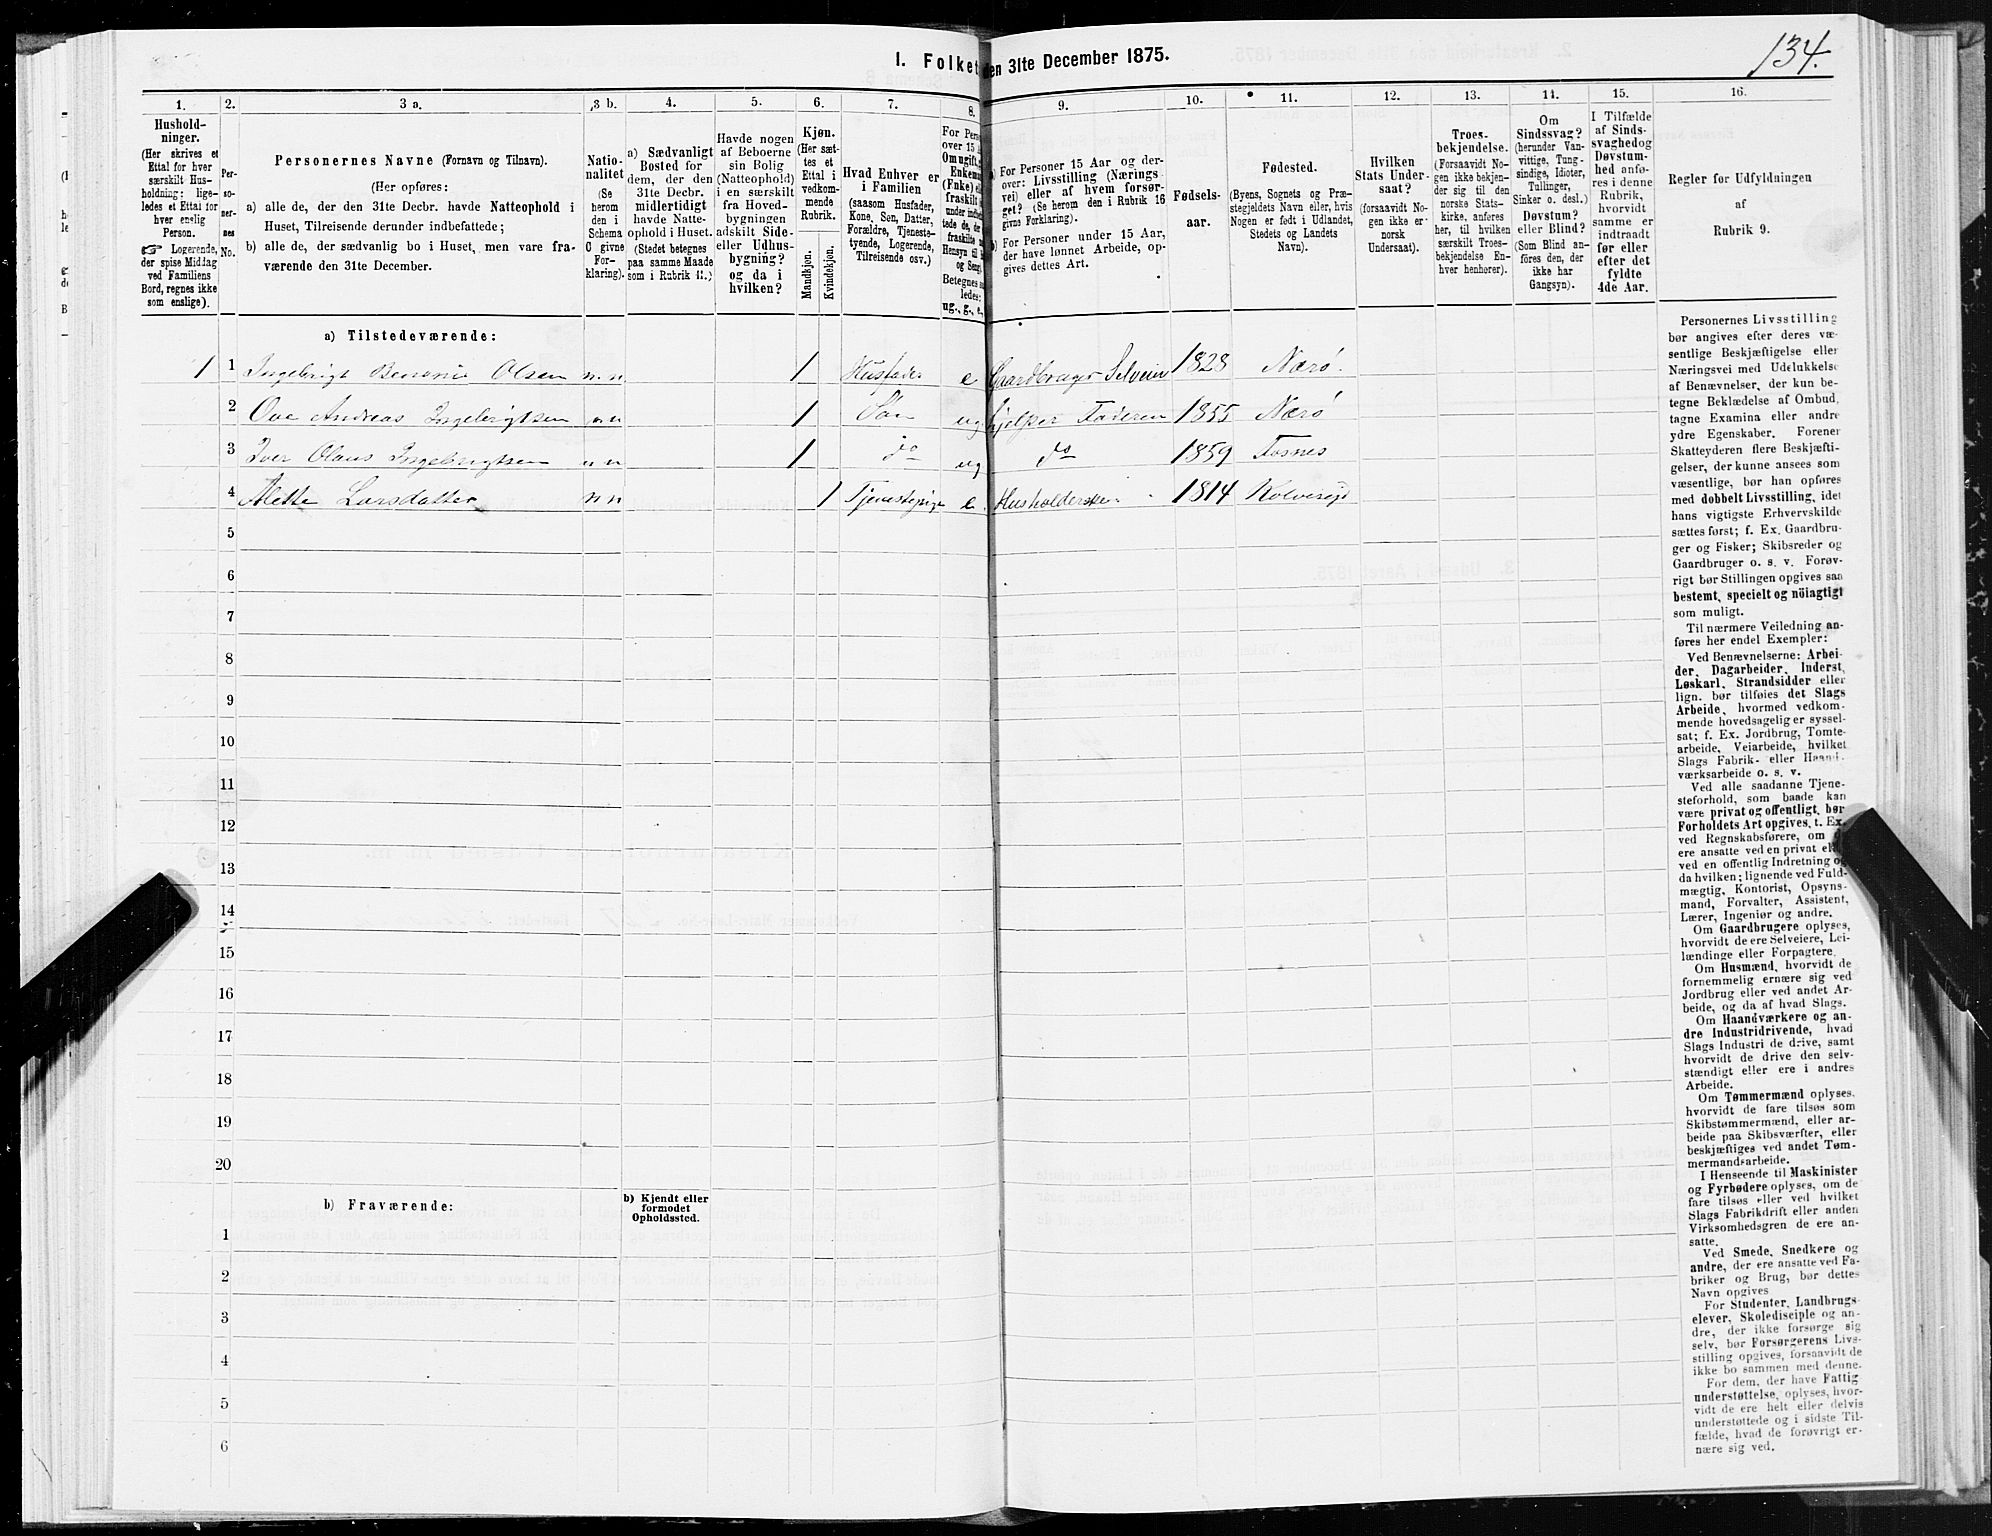 I. Folket
den 31te December 1875.
134.
1.
2.
3 a.
3 b.
4.
5.
6.
7.
8.
9.
10.
11.
12.
13.
14.
15.
16.
Hushold-
ninger.
(Her skrives et
Ettal for hver
særskilt Hus-
holdning: lige-
ledes et Ettal for
hver enslig
Person.
☞ Logerende,
der spise Middag
ved Familiens
Bord, regnes ikke
som enslige).
Per-
so-
ner-
nes
No.
Personernes Navne (Fornavn og Tilnavn).
(Her opføres:
a) alle de, der den 31te Decbr. havde Natteophold i
Huset, Tilreisende derunder indbefattede;
b) alle de, der sædvanlig bo i Huset, men vare fra-
værende den 31te December.
Natio-
nalitet
(Se
herom
den i
Schema
C givne
For-
klaring).
a) Sædvanligt
Bosted for
dem, der den
31te Decbr.
midlertidigt
havde Natte-
ophold i Huset.
(Stedet betegnes
paa samme Maade
som i Rubrik 11.)
Havde nogen
af Beboerne
sin Bolig
(Natteophold)
i en særskilt
fra Hoved-
bygningen
adskilt Side-
eller Udhus-
bygning?
og da i
hvilken?
Kjøn.
(Her sæt-
tes et
Ettal i
vedkom-
mende
Rubrik.
Mandkjøn.
Kvindekjøn.
Hvad Enhver er
i Familien
(saasom Husfader,
Kone, Søn, Datter,
Forældre, Tjeneste-
tyende, Logerende,
Tilreisende osv.)
For Pers
over 15
Om ugift,
Enkeman
(Fnke) el
fraskilt
Betegnes
ledes:
ug., g., e.,
a) For Personer 15 Aar og der-
over: Livsstilling (Nærings
vei) eller af hvem forsør-
get? (Se herom den i Rubrik 16
givne Forklaring).
b) For Personer under 15 Aar,
der have lønnet Arbeide, op-
gives dettes Art.
Fødsels-
aar.
Fødested.
(Byens, Sognets og Præ-
stegjeldets Navn eller, hvis
Nogen er født i Udlandet,
Stedets og Landets
Navn).
Hvilken
Stats Under-
saat?
(forsaavidt No-
gen ikke er
norsk
Undersaat).
Troes-
bekjendelse.
(Forsaavidt No-
gen ikke bekjen-
der sig til den
norske Stats-
kirke, anføres
her, til hvilken
særskilt Troes-
bekjendelse En-
hver henhører).
Om
Sindssvag?
(herunder Van-
vittige, Tung-
sindige, Idioter,
Tullinger,
Sinker o. desl.)
Døvstum?
eller Blind?
(Som Blind an-
føres den, der
ikke har
Gangsyn).
I Tilfælde
af Sinds-
svaghed og
Døvstum-
hed anfø-
res i denne
Rubrik,
hvorvidt
samme er
indtraadt
før eller
efter det
fyldte
4de Aar.
Regler for Udfyldningen
af
Rubrik 9.
a) Tilstedeværende:
1 1 Ingebrigt Benonie Olsen n.n 1 Husfader e Gaardbruger Selveier 1828 Nærø.
2 Ove Andreas Ingebrigtsen n.n 1 Søn ug hjelper Faderen 1855 Nærø
3 Iver Olaus Ingebrigtsen n n 1 do ug do 1859 Fosnes
4 Mette Larsdatter n n 1 Tjenestepige e. Husholderske 1814 Kolvereid
5
6
7
8
9
10
11
12
13
14
15
16
17
18
19
20
b) Fraværende:
b) Kjendt eller
formodet
Opholdssted.
1
2
3
4
5
6
Personernes Livsstilling
bør angives efter deres væ-
sentlige Beskjæftigelse eller
Næringsvei med Udelukkelse
af Benævnelser, der kun be-
tegne Beklædelse af Ombud,
tagne Examina eller andre
ydre Egenskaber. Forener
Skatteyderen flere Beskjæfti-
gelser, der kunne ansees som
væsentlige, bør han opføres
med dobbelt Livsstilling, idet
hans vigtigste Erhvervskilde
sættes først; f. Ex. Gaardbru-
ger og Fisker; Skibsreder og
Gaardbruger o. s. v. Forøv-
rigt bør Stillingen opgives saa
bestemt, specielt og nöiagtigt
som muligt.
Til nærmere Veiledning an-
føres her endel Exempler:
Ved Benævnelserne: Arbei-
der, Dagarbeider, Inderst,
Løskarl, Strandsidder eller
lign. bør tilføies det Slags
Arbeide, hvormed vedkom-
mende hovedsagelig er syssel-
sat; f. Ex. Jordbrug, Tomte-
arbeide, Veiarbeide, hvilket
Slags Fabrik- eller Haand-
værksarbeide o. s. v.
Ved alle saadanne Tjene-
steforhold, som baade kan
være privat og offentligt, bør
Forholdets Art opgives, t. Ex.
ved Regnskabsførere, om de
ere ansatte ved en privat eller
ved en offentlig Indretning og
da hvilken; lignende ved Fuld-
mægtig, Kontorist, Opsyns-
mand, Forvalter, Assistent,
Lærer, Ingeniør og andre.
Om Gaardbrugere oplyses,
hvorvidt de ere Selveiere, Lei-
lændinge eller Forpagtere.
Om Husmænd, hvorvidt de
fornemmelig ernære sig ved
Jordbrug eller ved andet Ar-
beide, og da af hvad Slags.
Om Haandværkere og an-
dre Industridrivende, hvad
Slags Industri de drive, samt
hvorvidt de drive den selv-
stændigt eller ere i andres
Arbeide.
Om Tømmermænd oplyses,
hvorvidt de fare tilsøs som
Skibstømmermænd, eller ar-
beide paa Skibsværfter, eller
beskjæftiges ved andet Tøm-
mermandsarbeide.
I Henseende til Maskinister
og Fyrbødere oplyses, om de
fare tilsøs eller ved hvilket
Slags Fabrikdrift eller anden
Virksomhedsgren de ere an-
satte.
Ved Smede, Snedkere og
andre, der ere ansatte ved Fa-
briker og Brug, bør dettes
Navn opgives
For Studenter, Landbrugs-
elever, Skoledisciple og an-
dre, der ikke forsørge sig
selv, bør Forsørgerens Livs-
stilling opgives, forsaavidt de
ikke bo sammen med denne.
For dem, der have Fattig
understøttelse, oplyses, hvor-
vidt de ere helt eller delvis
understøttede og i sidste Til-
fælde, hvad de forøvrigt er-
nære sig ved.